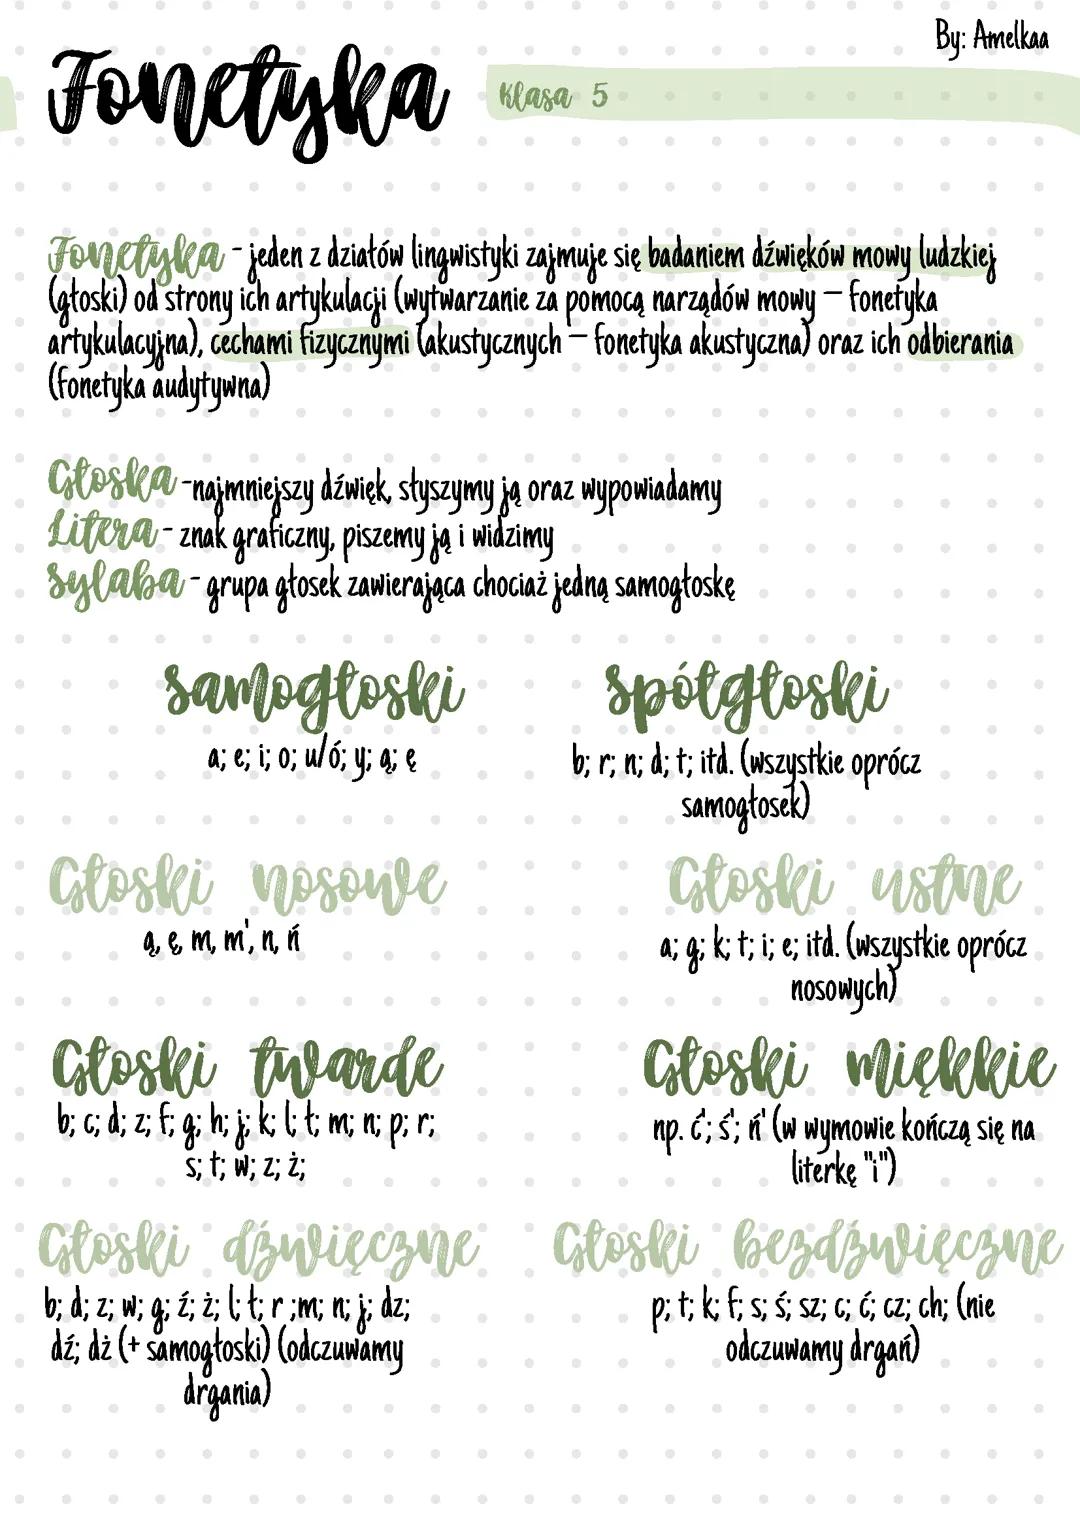 By: Amelkaa
Fonetyka
Klasa 5
Fonetyka - jeden z działów lingwistyki zajmuje się badaniem dźwięków mowy ludzkiej
(głoski) od strony ich artykulacji (wytwarzanie za pomocą narządów mowy – fonetyka
artykulacyjna), cechami fizycznymi (akustycznych – fonetyka akustyczna) oraz ich odbierania
(fonetyka audytywna)
Głoska -najmniejszy dźwięk, słyszymy ją oraz wypowiadamy
Litera - znak graficzny, piszemy ją i widzimy
Sylaba - grupa głosek zawierająca chociaż jedną samogłoskę
Samogłoski
a; e; i; o; u/ó; y; ą; ę
Spółgłoski
b; r; n; d; t; itd. (wszystkie oprócz
samogłosek)
Głoski nosowe
ą, ę, m, m', n, ń
Głoski ustne
a; g; k; t; i; e; itd. (wszystkie oprócz
nosowych)
Głoski twarde
b; c; d; z; f; g; h; j; k; l; ł; m; n; p; r;
s; t; w; z; ż;
Głoski miękkie
np. ć'; ś'; ń' (w wymowie kończą się na
literkę "i")
Głoski dźwięczne
b; d; z; w; g; ź; ż; l; ł; r ;m; n; j; dz;
dź; dż (+ samogłoski) (odczuwamy
drgania)
Głoski bezdźwięczne
p; t; k; f; s; ś; sz; c; ć; cz; ch; (nie
odczuwamy drgań)